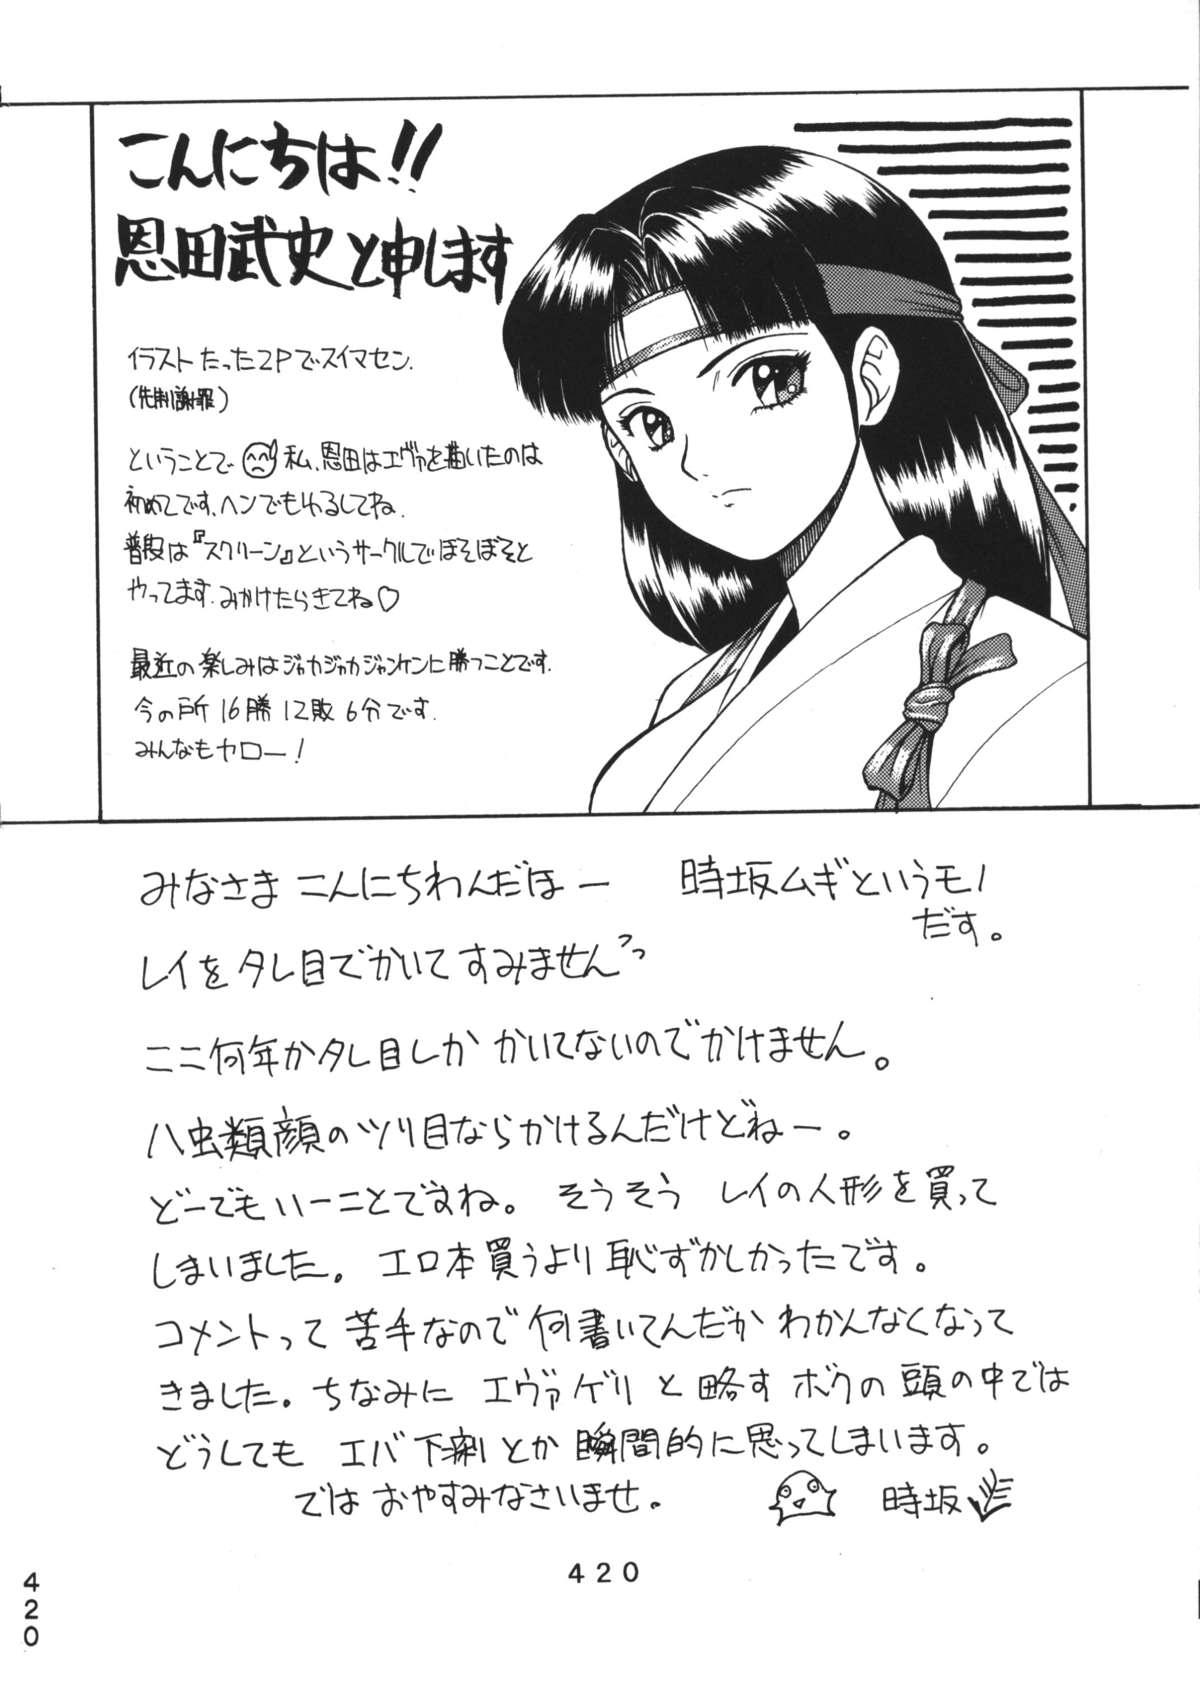 こんにちは!!
恩田武史と申します
イラストたった2Pでスイマセン.
(先制謝罪)
ということで 私、恩田はエヴァを描いたのは
初めてです、ヘンでもゆるしてね.
普段は『スクリーン』というサークルでぼそぼそと
やってます.みかけたらきてね♡
最近の楽しみはジャカジャカジャンケンに勝つことです.
今の所16勝12敗6分です.
みんなもヤロー!
みなさま こんにちわんだほー 時坂ムギというモノ
だす。
レイをタレ目でかいてすみませんっ
ここ何年かタレ目しか かいてないのでかけません。
ハ虫類顔のツリ目ならかけるんだけどねー。
どーでもいーことですね。そうそう レイの人形を買って
しまいました。エロ本買うより恥ずかしかったです。
コメントって苦手なので何書いてんだか わかんなくなって
きました。ちなみに エヴァゲリ と略す ボクの頭の中では
どうしても エバ下痢とか瞬間的に思ってしまいます。
では おやすみなさいませ。 時坂
420
420